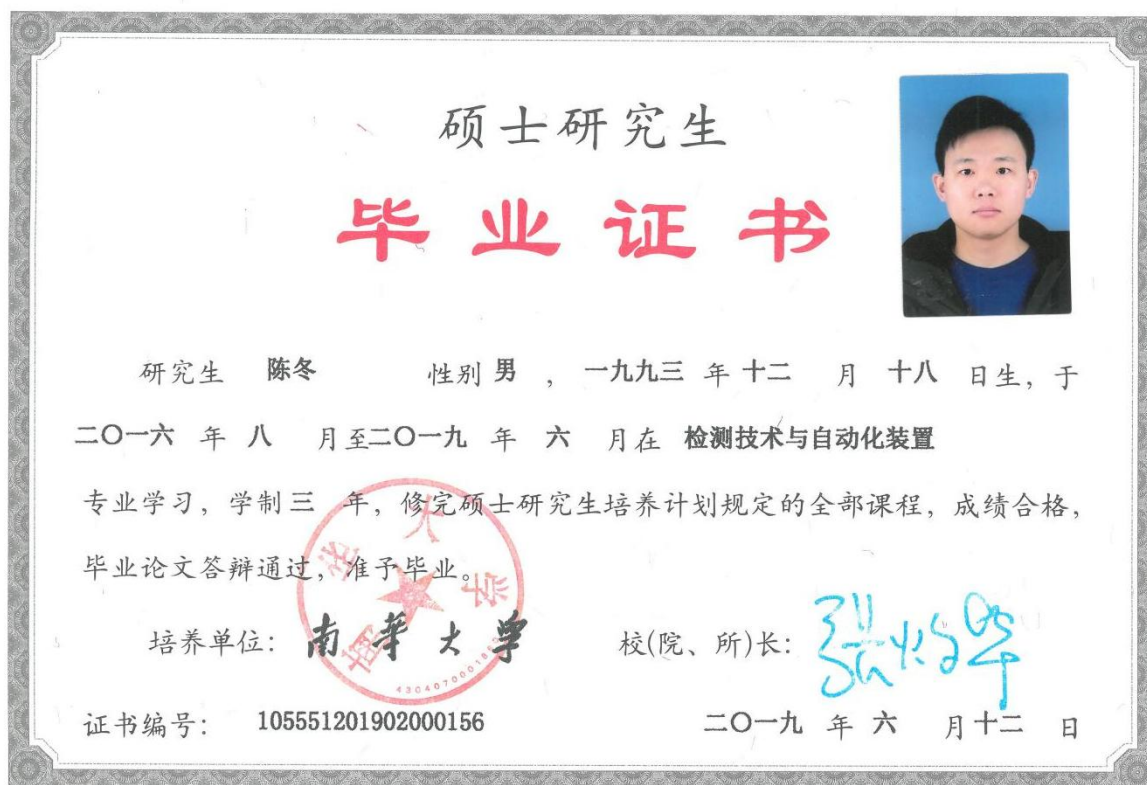 硕士研究生
毕业证书
研究生 陈冬 性别 男 , 一九九三 年 十二 月 十八 日生, 于
二〇一六 年 八 月至二〇一九 年 六 月在 检测技术与自动化装置
专业学习, 学制 三 年, 修完硕士研究生培养计划规定的全部课程, 成绩合格,
毕业论文答辩通过, 准予毕业。
南华大学
培养单位: 南華大学 校(院、所)长: 张灼华
证书编号: 105551201902000156 二〇一九 年 六 月 十二 日